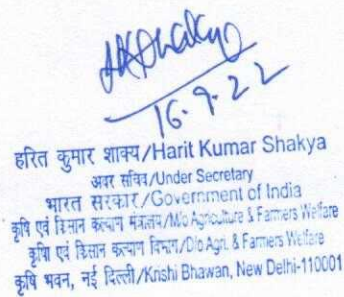 HKShakya
16.9.22
हरित कुमार शाक्य/Harit Kumar Shakya
अवर सचिव/Under Secretary
भारत सरकार/Government of India
कृषि एवं किसान कल्याण मंत्रालय/M/o Agriculture & Farmers Welfare
कृषि एवं किसान कल्याण विभाग/D/o Agri. & Farmers Welfare
कृषि भवन, नई दिल्ली/Krishi Bhawan, New Delhi-110001